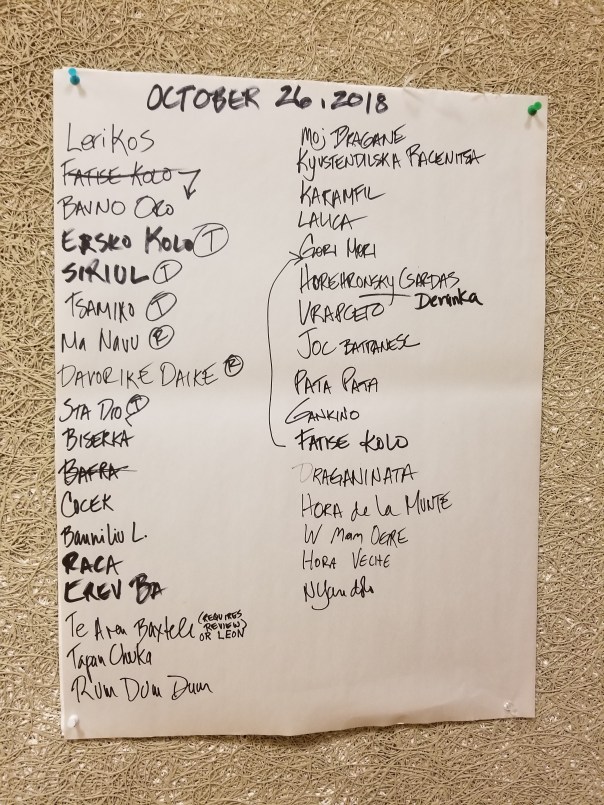 OCTOBER 26, 2018
Lerikos
FATISE KOLO
BAVNO ORO
ERSKO KOLO T
SIRIUL T
TSAMIKO T
Ma NAVU R
DAVORIKE DAIKE R
STA DIO T
BISERKA
BAFRA
COCEK
Banniliu L.
RACA
EREV BA
Te Aven Baxtele (REQUIRES REVIEW) OR LEON
Tapan Chuka
Rum Dum Dum
Moj DRAGANE
KYUSTENDILSKA RACENITSA
KARAMFIL
LALICA
GORI MORI
HOREHRONSKY CSARDAS
Deninka
VRAPCETO
JOC BATRANESC
PATA PATA
GANKINO
FATISE KOLO
DRAGANINATA
HORA de La MUNTE
W Mam OGRE
HORA VECHE